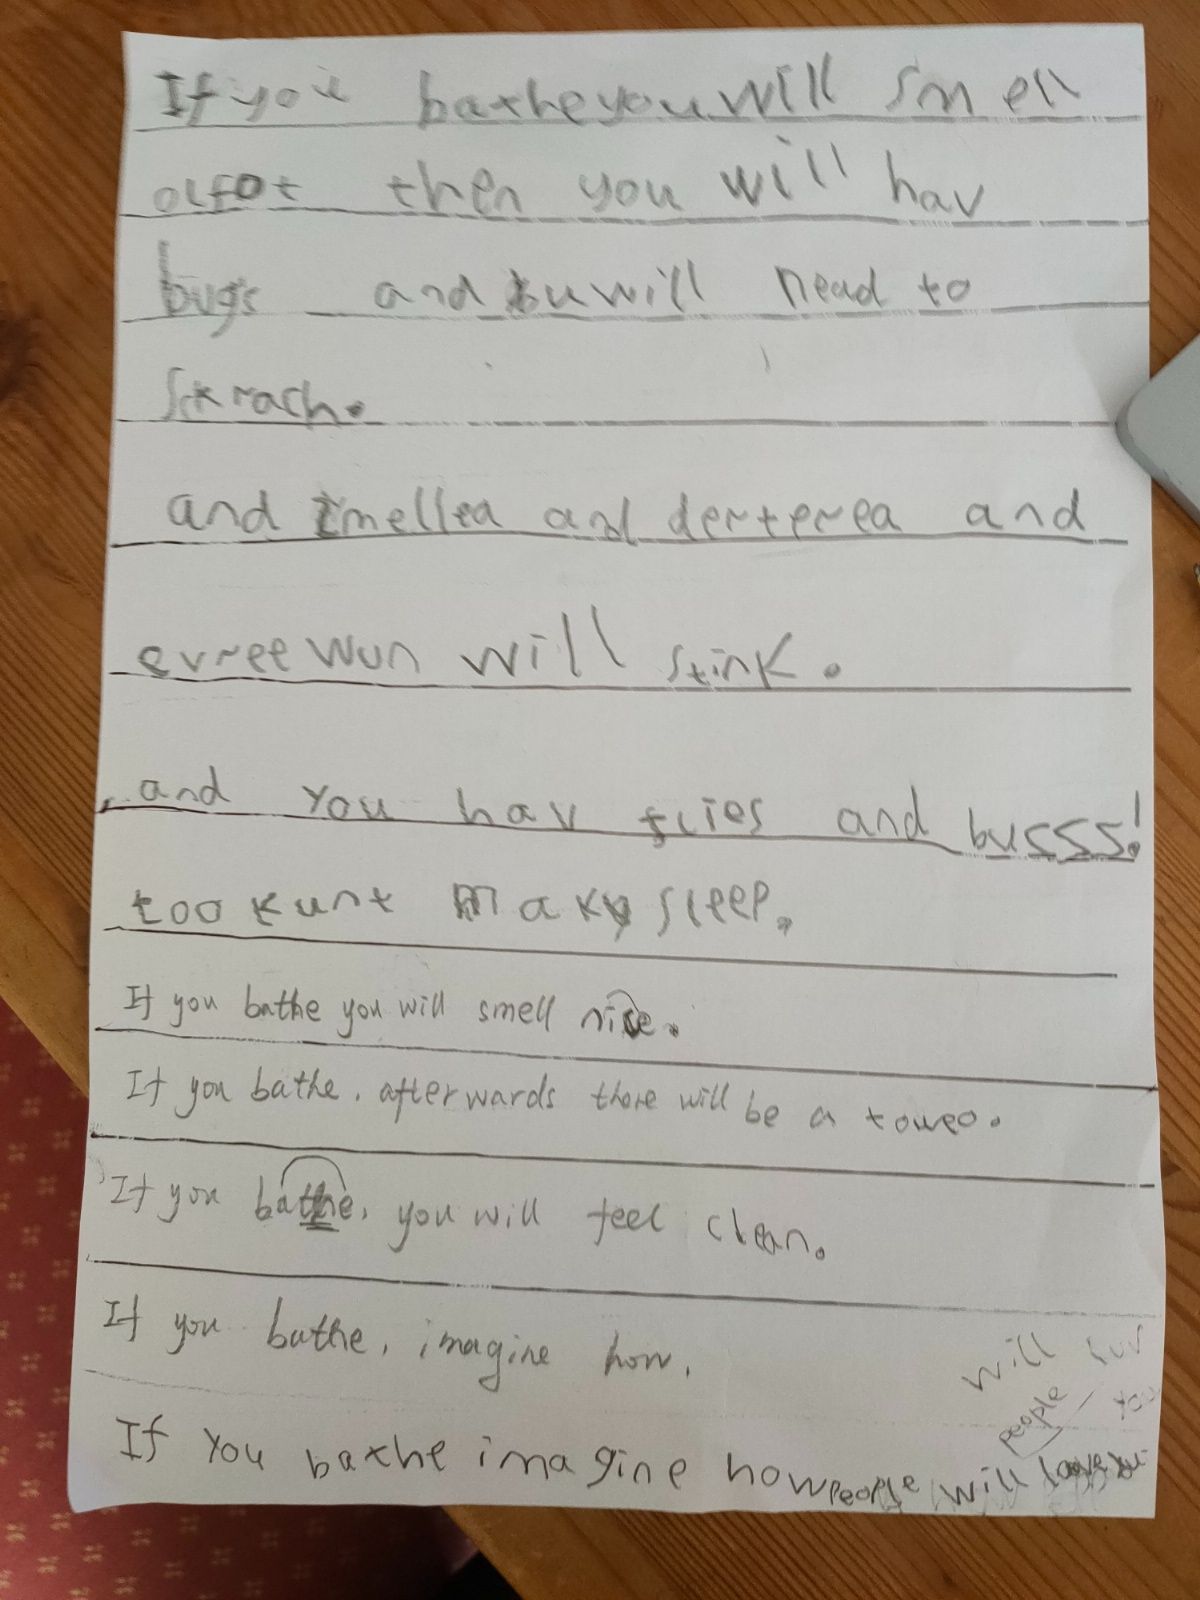 If you bathe you will smell
olfot then you will hav
bugs and u will nead to
skrach.
and smellea and derterea and
evreewun will stink.
and you hav flies and busss!
too kunt maky sleep.
If you bathe you will smell nice.
If you bathe, afterwards there will be a toweo.
If you bathe, you will feel clean.
If you bathe, imagine how.
will luv
people you
If you bathe imagine how people will love you